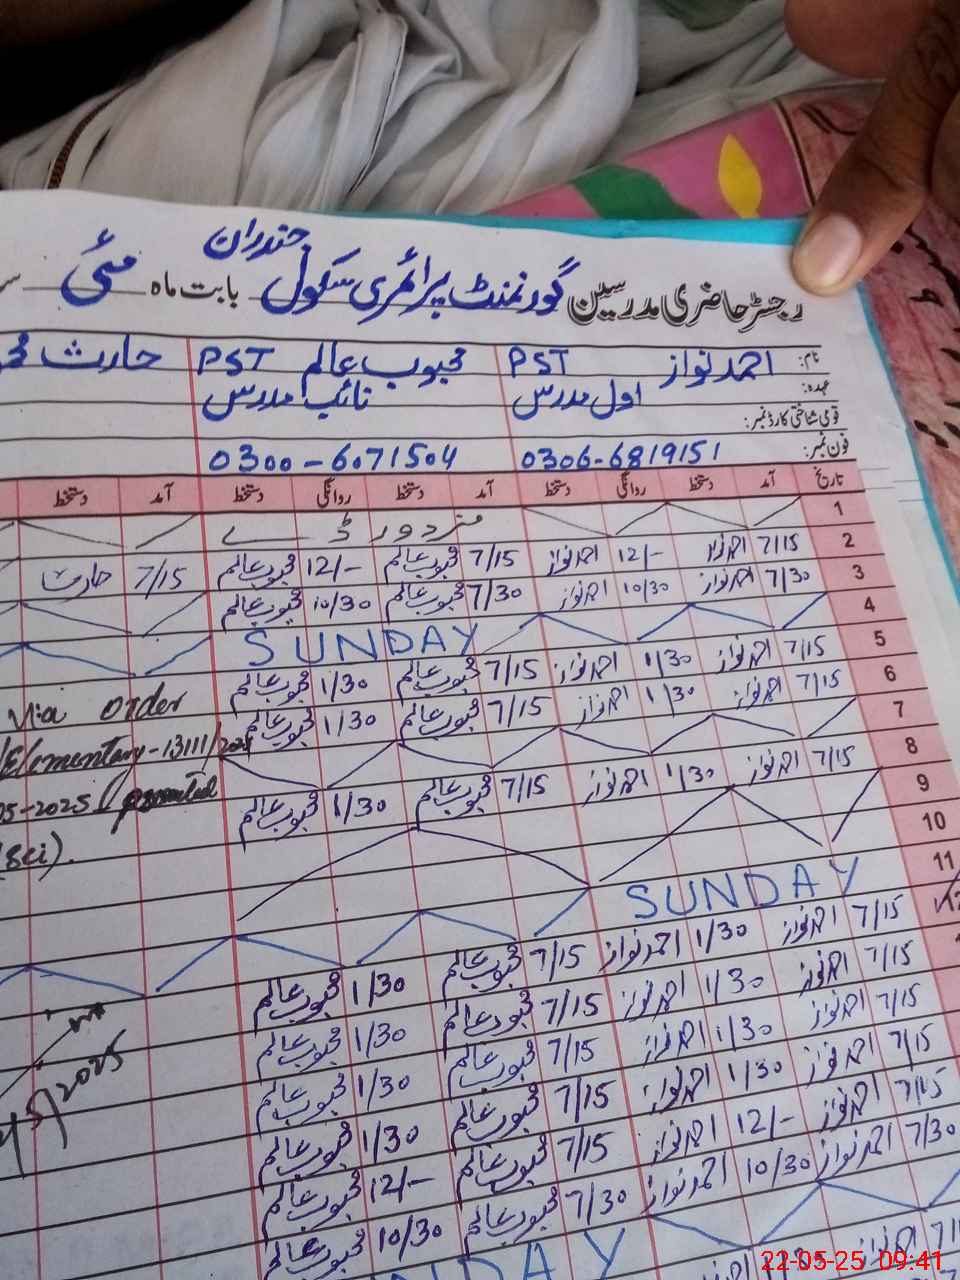 جندران
رجسٹر حاضری مدرسین گورنمنٹ پرائمری سکول بابت ماہ مئی
نام: احمد نواز PST محبوب عالم PST حارث
عہدہ: اول مدرس نائب مدرس
قومی شناختی کارڈ نمبر:
فون نمبر: 0306-6819151 0300-6071504
تاریخ آمد دستخط روانگی دستخط آمد دستخط روانگی دستخط آمد دستخط
1 مزدور ڈے
2 7/15 احمد نواز 12/- احمد نواز 7/15 محبوب عالم 12/- محبوب عالم 7/15 حارث
3 7/30 احمد نواز 10/30 احمد نواز 7/30 محبوب عالم 10/30 محبوب عالم
4 SUNDAY
5 7/15 احمد نواز 1/30 احمد نواز 7/15 محبوب عالم 1/30 محبوب عالم
6 7/15 احمد نواز 1/30 احمد نواز 7/15 محبوب عالم 1/30 محبوب عالم
Via order
7
/Elementary-13111/2025
8 7/15 احمد نواز 1/30 احمد نواز 7/15 محبوب عالم 1/30 محبوب عالم
05-2025 promoted
9
(Sci).
10
11 SUNDAY
12 7/15 احمد نواز 1/30 احمد نواز 7/15 محبوب عالم 1/30 محبوب عالم
7/15 احمد نواز 1/30 احمد نواز 7/15 محبوب عالم 1/30 محبوب عالم
7/15 احمد نواز 1/30 احمد نواز 7/15 محبوب عالم 1/30 محبوب عالم
5/2025
7/15 احمد نواز 1/30 احمد نواز 7/15 محبوب عالم 1/30 محبوب عالم
7/15 احمد نواز 12/- احمد نواز 7/15 محبوب عالم 12/- محبوب عالم
7/30 احمد نواز 10/30 احمد نواز 7/30 محبوب عالم 10/30 محبوب عالم
NDAY
7/15 احمد نواز
22-05-25 09:41